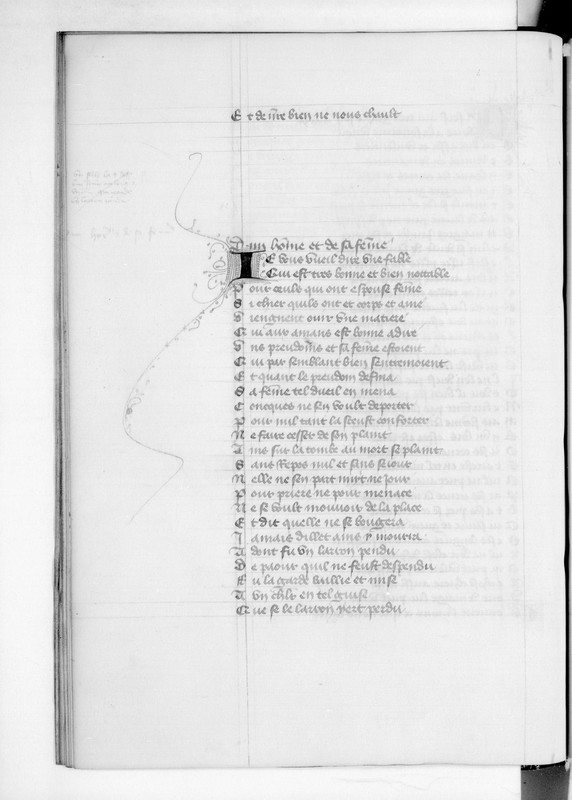 Et de nr̄e bien ne nous chault
D'un hōme et de sa fēme
Je vous vueil dire vne fable
Qui est tres bonne et bien nottable
Pour ceulx qui ont espouse feme
Si chier quils ont et corps et ame
Viengnent ouir vne matiere
Qui aux amans est bonne a dire
Vns preudom̄s et sa feme estoient
Qui par semblant bien sentremoient
Et quant le preudom defina
Sa feme tel dueil en mena
Concques ne sen voult deporter
Pour nul tant la sceust conforter
Ne faire cesser de son plaint
Ains sur la tombe au mort se plaint
Sans repos nul et sans seiour
Nelle ne sen part nuit ne jour
Pour priere ne pour menace
Ne se voult mouuoir de la place
Et dit quelle ne se bougera
Jamais dillec ains y mourra
Adont fu vn larron pendu
De paour quil ne feust despendu
Fu la garde baillie et mise
A vn chlr̄ en tel guise
Que se le larron yert perdu